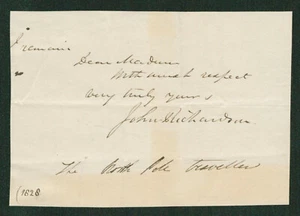 I remain
Dear Madam
With much respect
very truly yours
John Richardson
The North Pole traveller
(1828